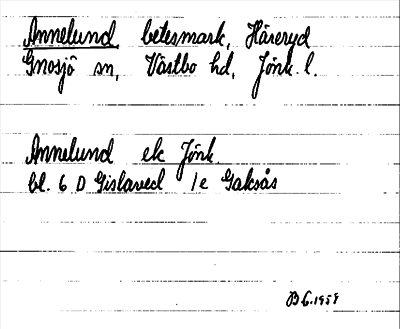 Annelund, betesmark, Håreryd
Gnosjö sn, Västbo hd, Jönk. l.
Annelund ek Jönk.
bl. 6 D Gislaved 1e Gaksås
B G. 1958